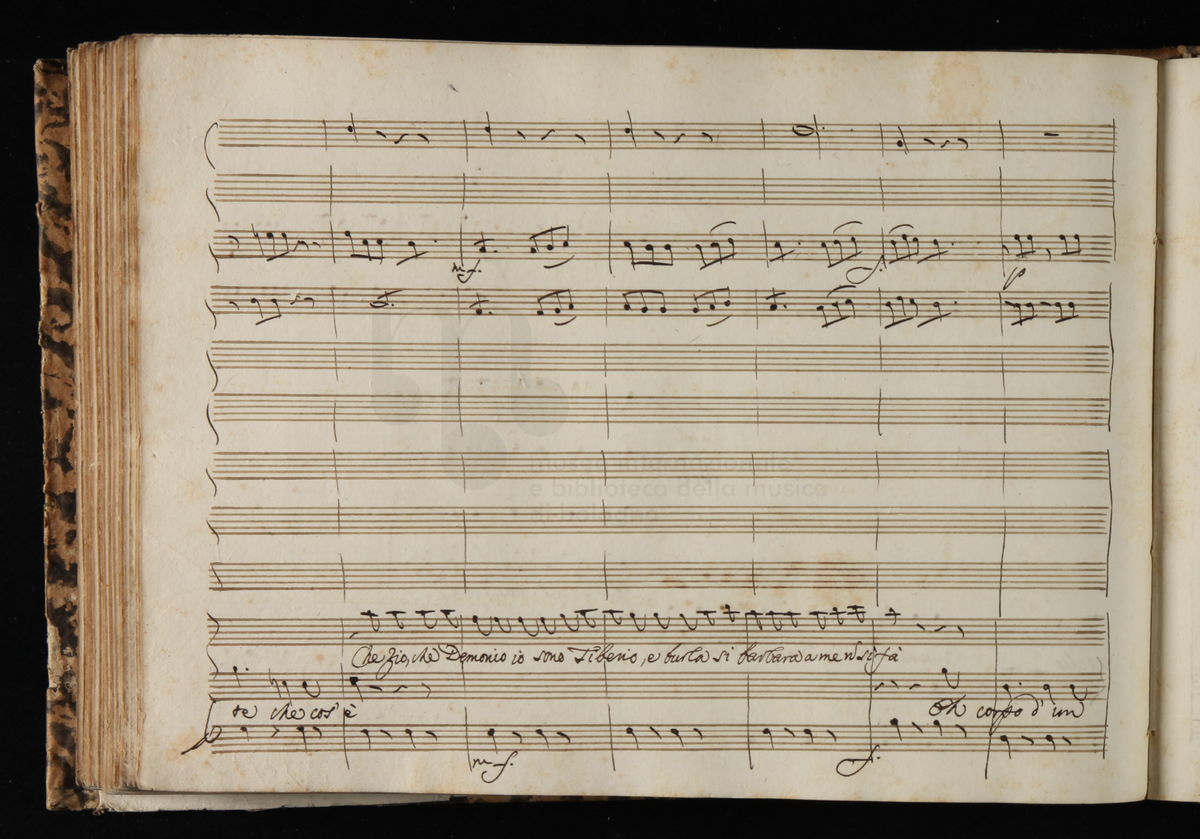 mf.
f.
p
museo internazionale
e biblioteca della musica
di bologna
Che Zio, che Demonio io sono Tiberio, e burla si barbara a me si fà
te che cos'è
Oh corpo d'un
mf.
f.